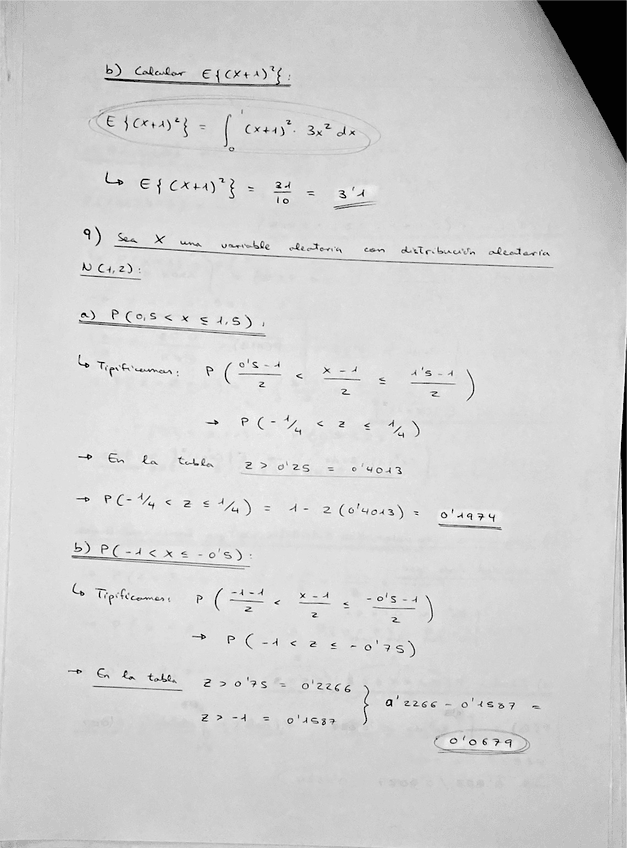 b) Calcular E{(X+1)²}:
E{(X+1)²} = ∫₀¹ (x+1)² · 3x² dx
↳ E{(X+1)²} = 31/10 = 3'1
9) Sea X una variable aleatoria con distribución aleatoria
N(1,2):
a) P(0,5 < x ≤ 1,5):
↳ Tipificamos: P( (0'5-1)/2 < (x-1)/2 ≤ (1'5-1)/2 )
→ P(-1/4 < z ≤ 1/4)
→ En la tabla z > 0'25 = 0'4013
→ P(-1/4 < z ≤ 1/4) = 1 - 2(0'4013) = 0'1974
b) P(-1 < x ≤ -0'5):
↳ Tipificamos: P( (-1-1)/2 < (x-1)/2 ≤ (-0'5-1)/2 )
→ P(-1 < z ≤ -0'75)
→ En la tabla z > 0'75 = 0'2266
z > -1 = 0'1587 } 0'2266 - 0'1587 =
0'0679